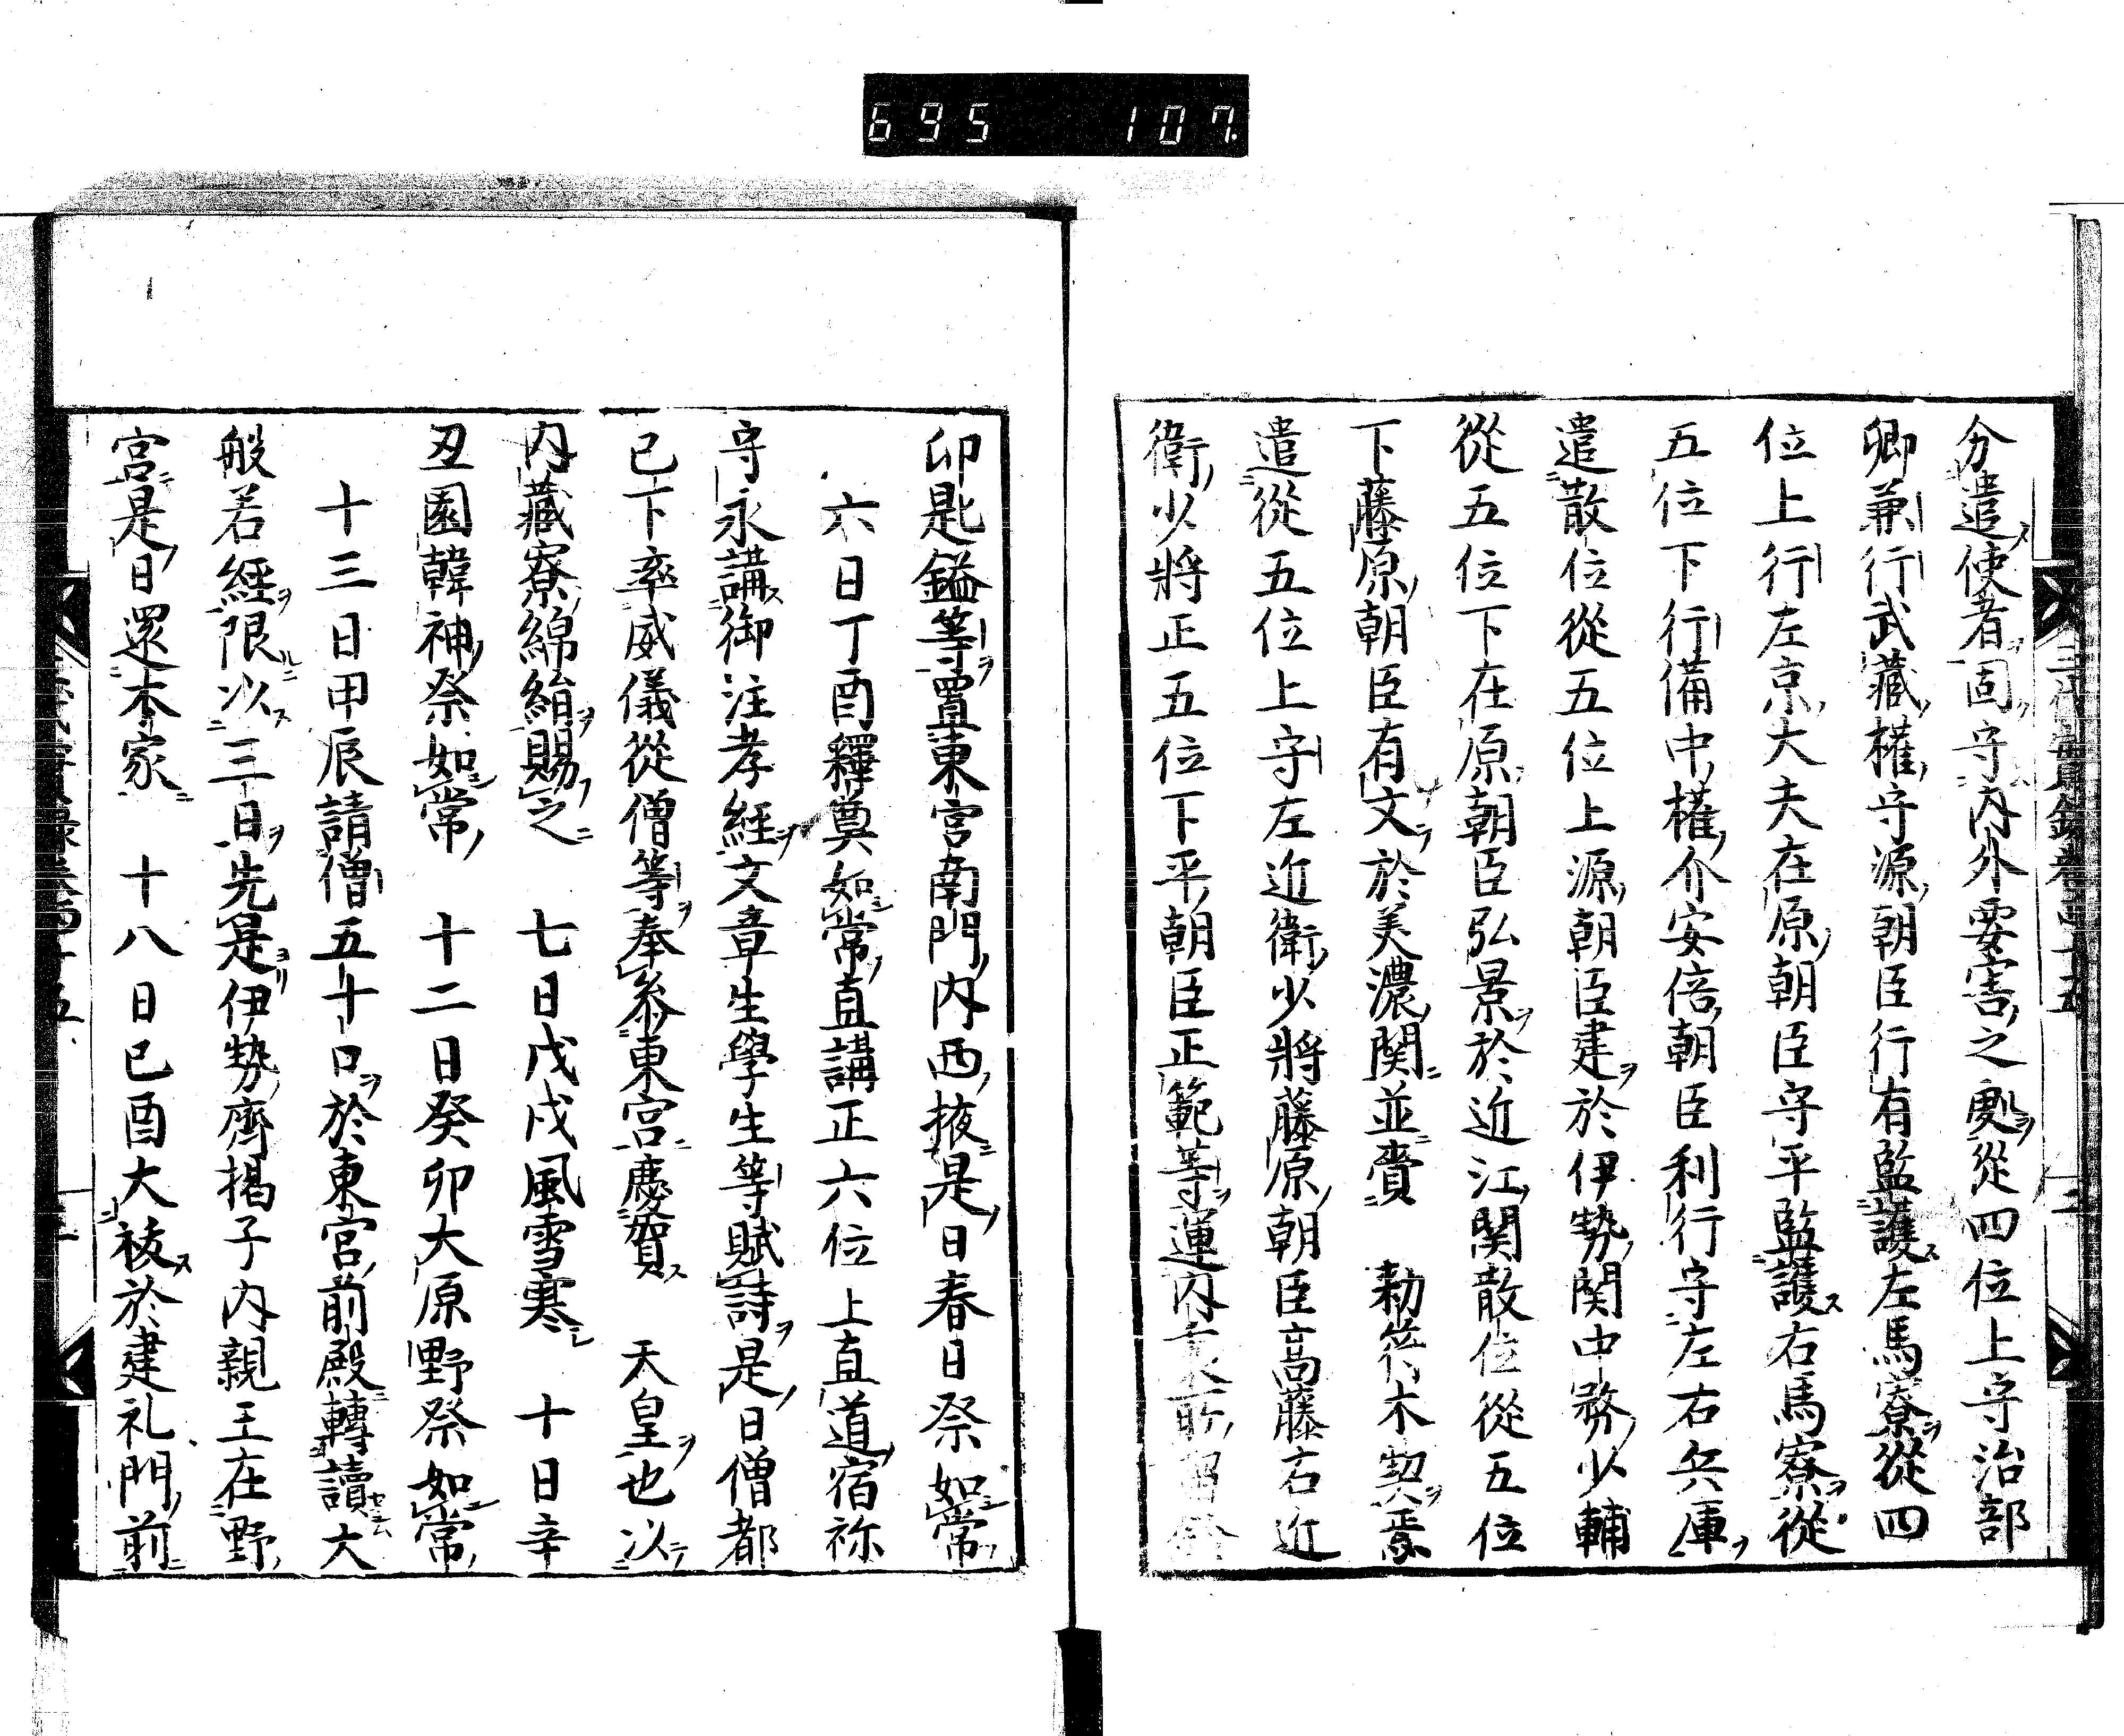 695 107
分遣使者固守內外要害之處從四位上守治部
卿兼行武藏權守源朝臣行有監護左馬寮從四
位上行左京大夫在原朝臣守平監護右馬寮從
五位下行備中權介安倍朝臣利行守左右兵庫
遣散位從五位上源朝臣建於伊勢関中務少輔
從五位下在原朝臣弘景於近江関散位從五位
下藤原朝臣有文於美濃関並賫 勅符木契焉
遣從五位上守左近衛少將藤原朝臣高藤右近
衛少將正五位下平朝臣正範等運內
印匙鎰等置東宮南門內西掖是日春日祭如常
六日丁酉釋奠如常直講正六位上直道宿祢
守永講御注孝經文章生學生等賦詩是日僧都
已下率威儀從僧等奉參東宮慶賀 天皇也以
內藏寮綿紿賜之 七日戊戌風雪寒 十日辛
丑園韓神祭如常 十二日癸卯大原野祭如常
十三日甲辰請僧五十口於東宮前殿轉讀大
般若經限以三日先是伊勢齊揭子內親王在野
宮是日還本家 十八日已酉大祓於建礼門前